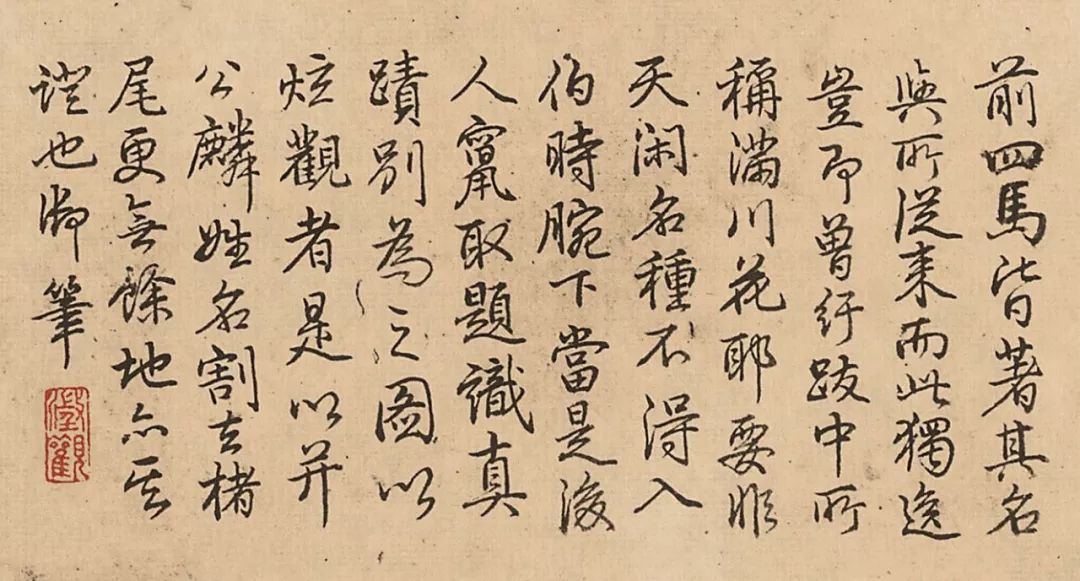 前四馬皆著其名
與所從來而此獨逸
豈即曾紆跋中所
稱滿川花耶要非
天閑名種不得入
伯時腕下當是後
人竄取題識真
蹟別為之圖以
炫觀者是以并
公麟姓名割去楮
尾更無餘地亦其
證也御筆
觀